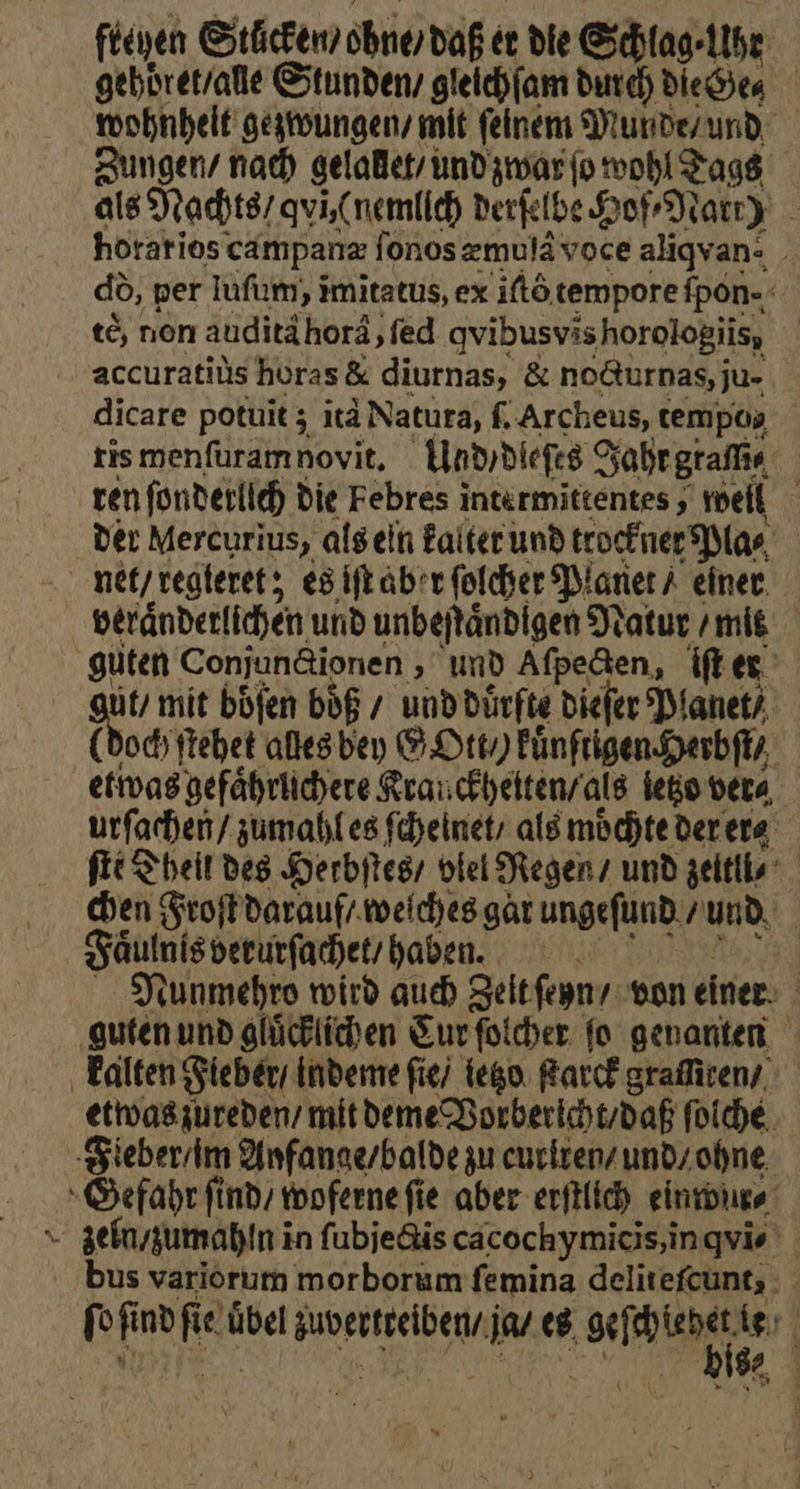 freyen Stücken/ ohne/ daß er die Schlag-Uhr
gehöret/ alle Stunden/ gleichſam durch die Ge-
wohnheit gezwungen/ mit ſeinem Munde/ und
Zungen/ nach gelallet/ und zwar ſo wohl Tags
als Nachts/ qvi, (nemlich derſelbe Hof-Narr)
horarios campanæ ſonos æmulâ voce aliqvan-
dò, per luſum, imitatus, ex iſtô tempore ſpon-
tè, non auditâ horâ, ſed qvibusvis horologiis,
accuratiùs horas & diurnas, & nocturnas, ju-
dicare potuit; ità Natura, ſ. Archeus, tempo-
ris menſuram novit. Und/ dieſes Jahr graſſi-
ren ſonderlich die Febres intermittentes, weil
der Mercurius, als ein kalter und trockner Pla-
net/ regieret; es iſt aber ſolcher Planet / einer
veränderlichen und unbeſtändigen Natur / mit
guten Conjunctionen, und Aſpecten, iſt er
gut/ mit böſen böß / und dürfte dieſer Planet/
(doch ſtehet alles bey GOtt/) künftigen Herbſt/
etwas gefährlichere Kranckheiten/ als ietzo ver-
urſachen/ zumahl es ſcheinet/ als möchte der er-
ſte Theil des Herbſtes/ viel Regen/ und zeitli-
chen Froſt darauf/ welches gar ungeſund / und
Fäulnis verurſachet/ haben.
Nunmehro wird auch Zeit ſeyn/ von einer
guten und glücklichen Cur ſolcher ſo genanten
kalten Fieber/ indeme ſie/ ietzo ſtarck graſſiren/
etwas zureden/ mit deme Vorbericht/ daß ſolche
Fieber/ im Anfange/ balde zu curiren/ und/ ohne
Gefahr ſind/ woferne ſie aber erſtlich einwur-
zeln/ zumahln in ſubjectis cacochymicis, in qvi-
bus variorum morborum ſemina deliteſcunt,
ſo ſind ſie übel zuvertreiben/ ja/ es geſchiehet ie-
bis-